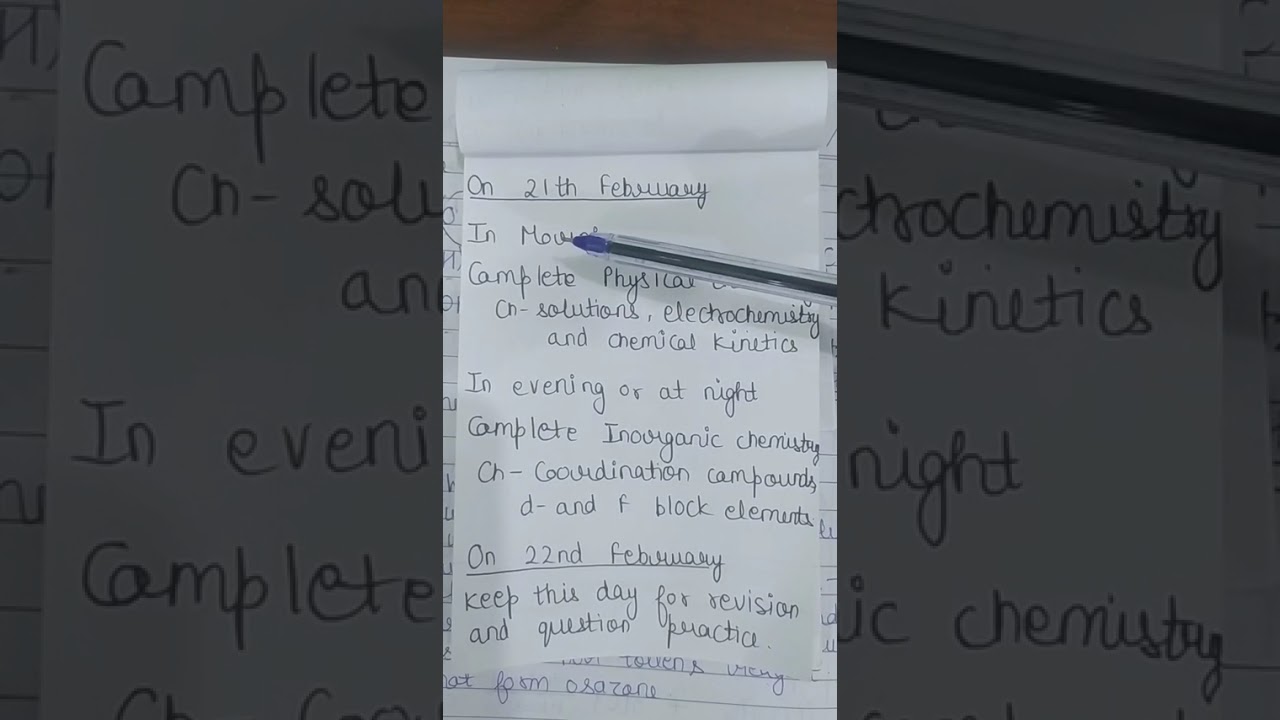 On 21th February
In
Complete Physical
Ch- solutions, electrochemistry
and chemical kinetics
In evening or at night
Complete Inorganic chemistry
Ch- Coordination compounds,
d- and f block elements.
On 22nd February
keep this day for revision
and question practice.
that form osazone